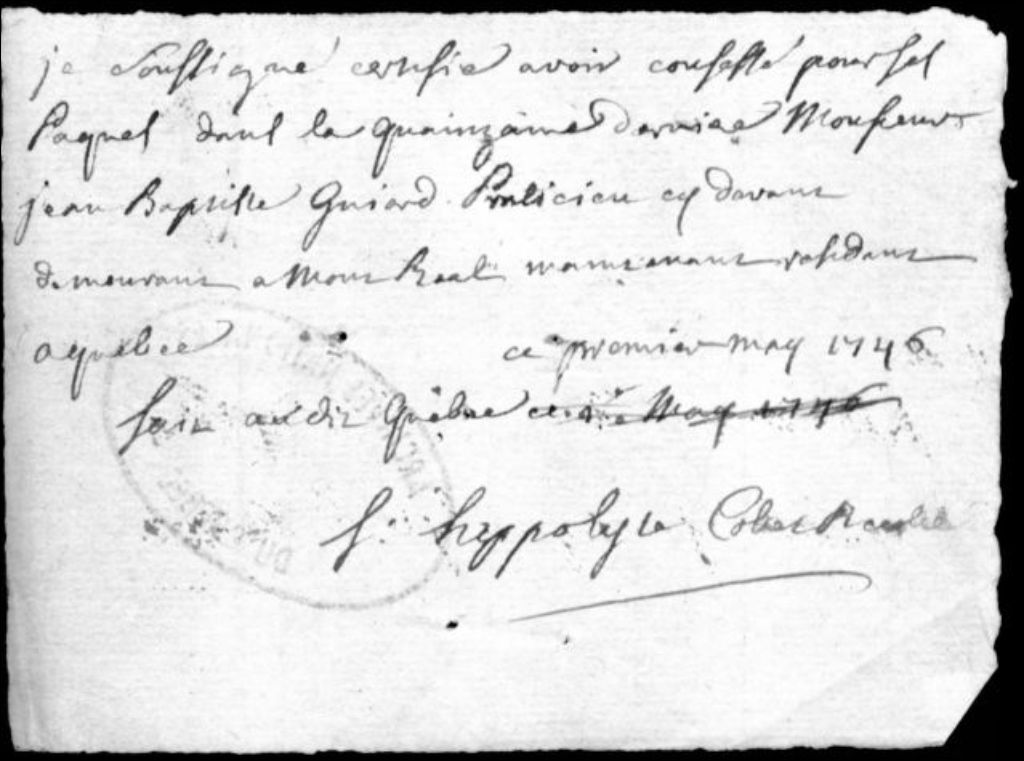 je Soussigné certifie avoir confessé pour ses
Paques dans la quainzaine derniere Monsieur
jean Baptiste Guiard Praticien cy devant
demeurant a Mont Real maintenant residant
a quebec ce premier may 1746
fait au dit Quebec ce 1e May 1746
f. hyppolyte Recollet